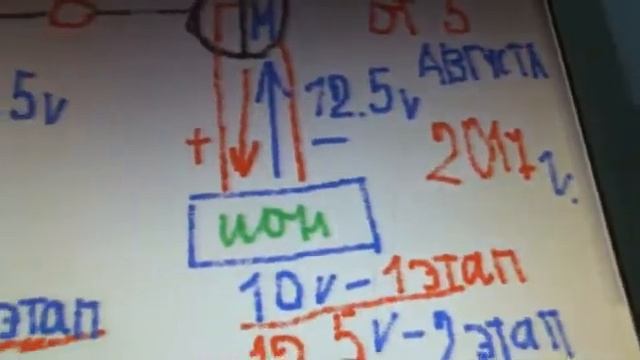 Г М
от 5
АВГУСТА
5v
12.5v
+
−
2017 г.
ион
10v-1этап
этап
12.5v-2этап